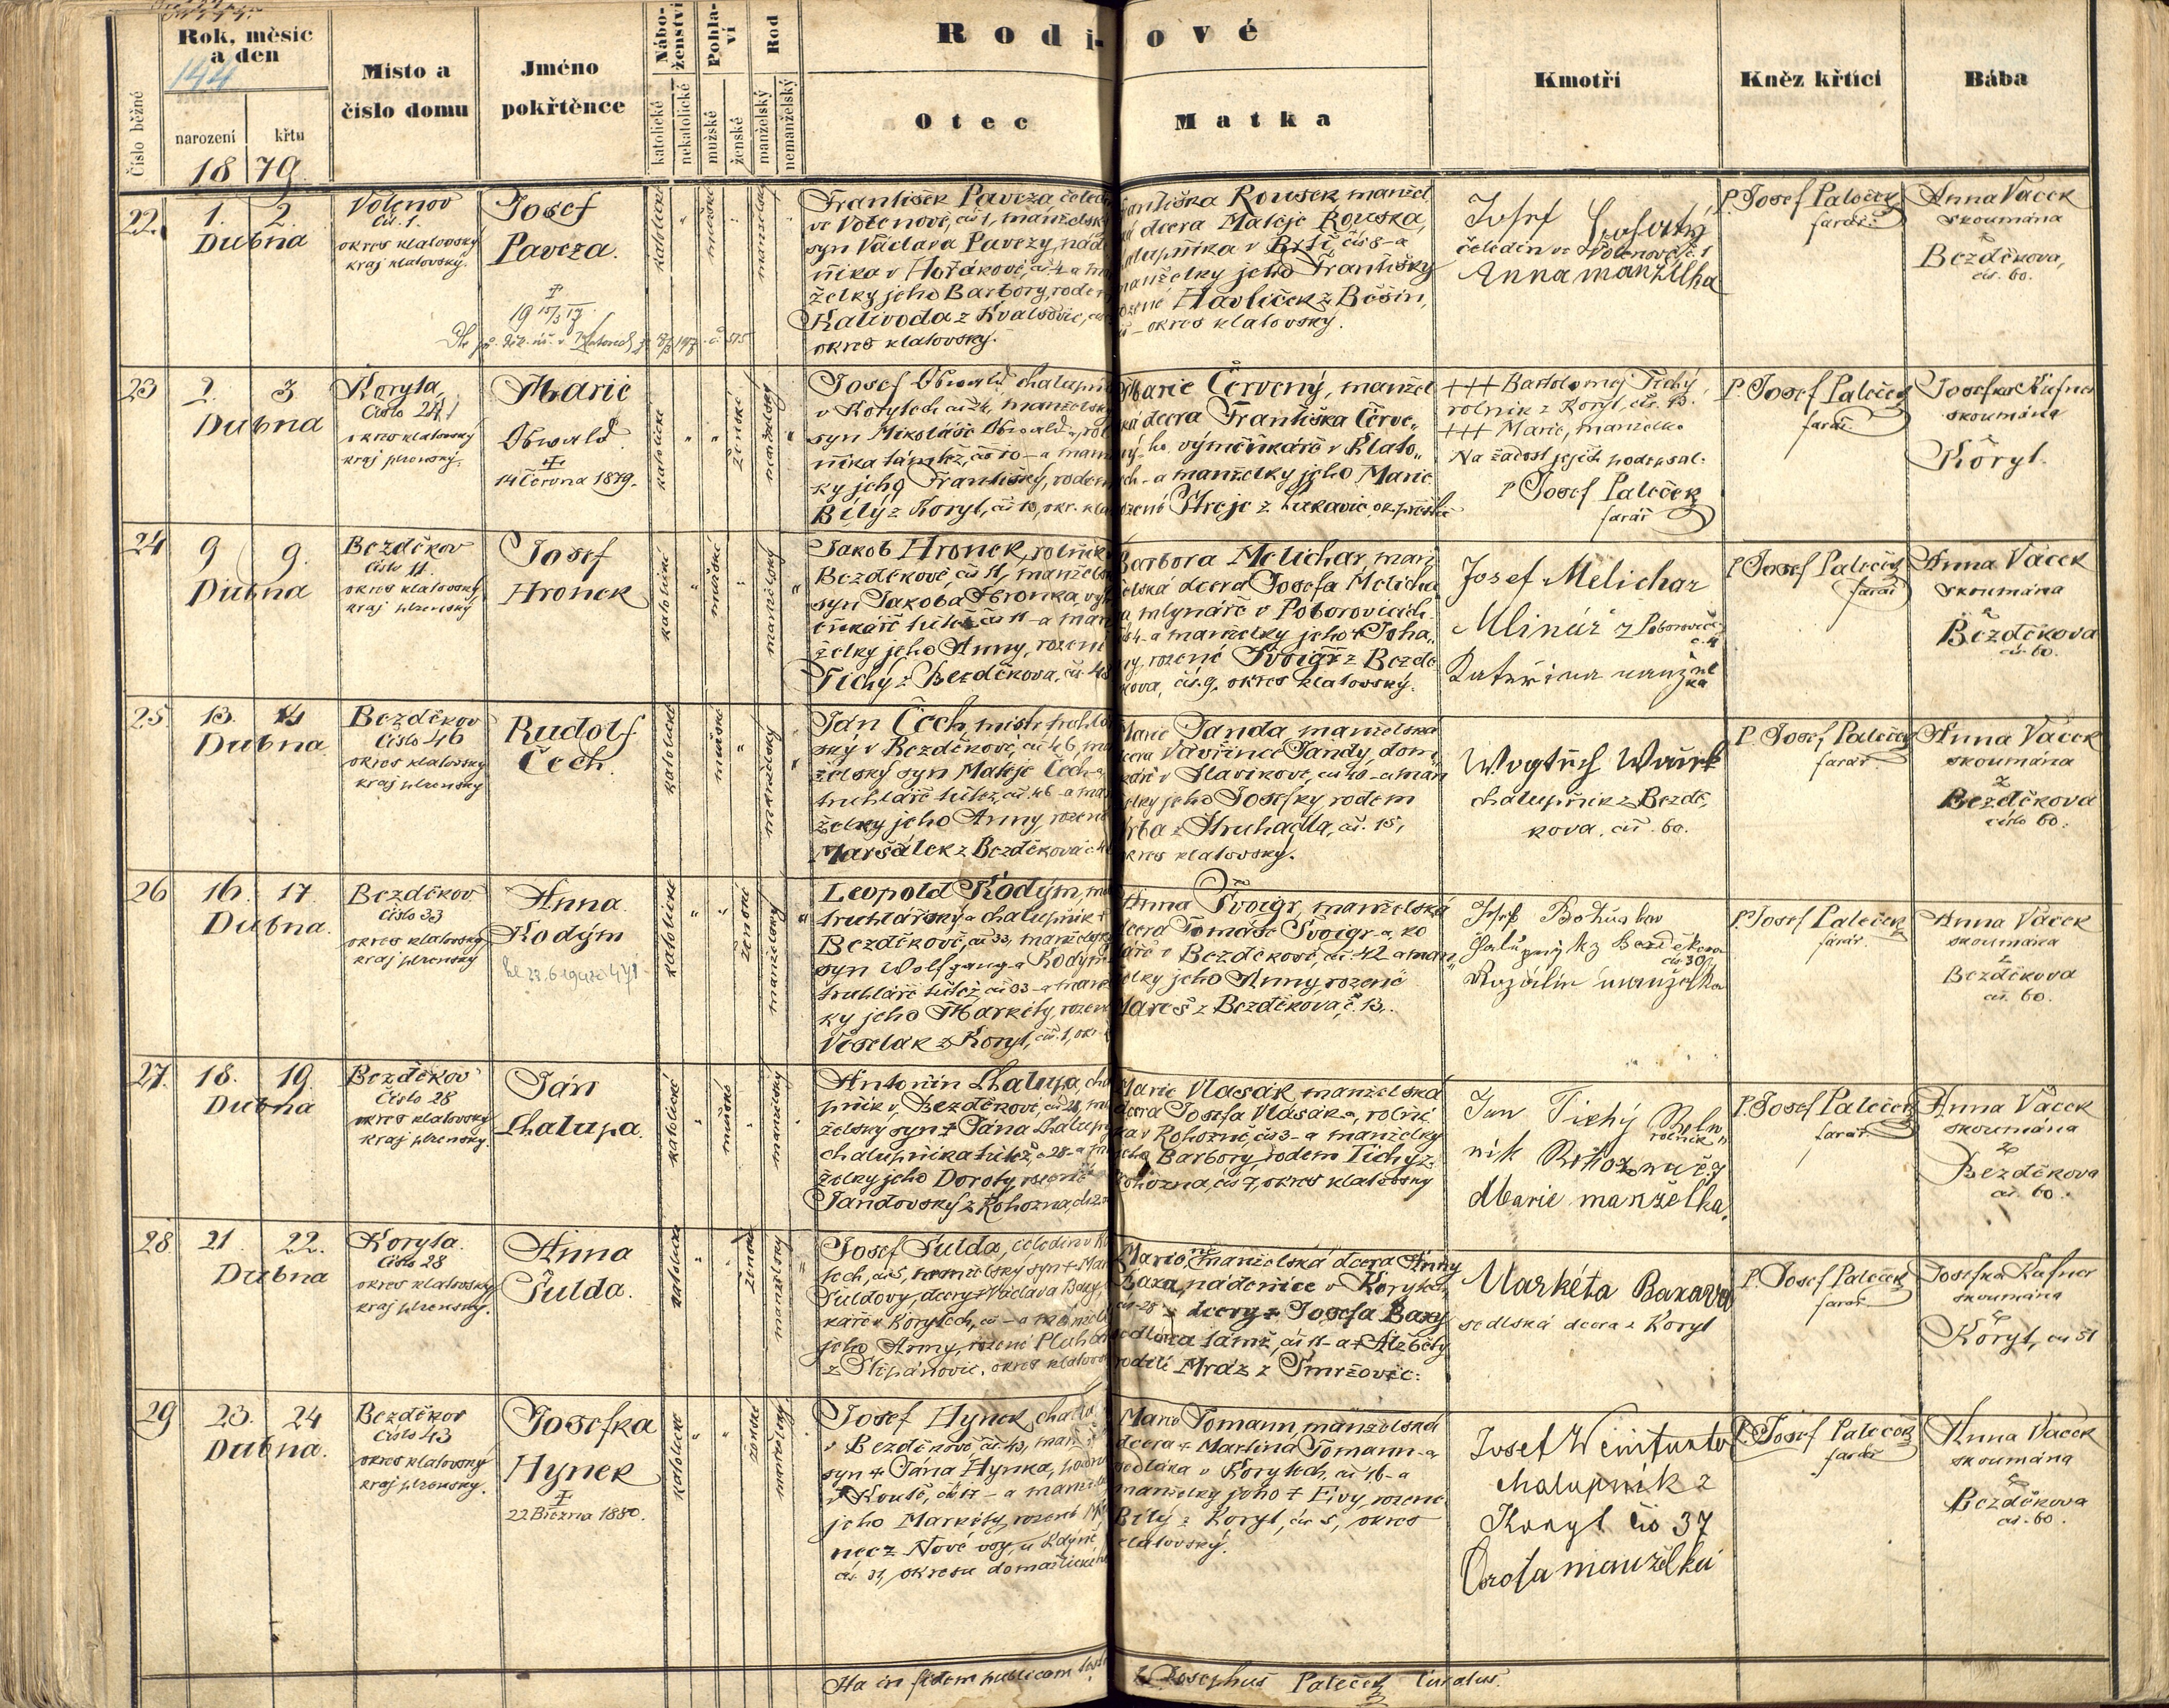 Rodičové
Číslo běžné
Rok, měsíc
a den
144
narození
křtu
1879.
Místo a
číslo domu
Jméno
pokřtěnce
Nábo-
ženství
katolické
nekatolické
Pohla-
ví
mužské
ženské
Rod
manželský
nemanželský
Otec
Matka
Kmotři
Kněz křtící
Bába
22.
1. 2.
Dubna
Volenov
čís. 1.
okres klatovský
kraj klatovský.
Josef
Paveza.
katolické
mužské
manželský
František Paveza, čeledín
ve Volenově, čís 1, manželský
syn Václava Pavezy, nád
níka v Hořákově, čís 4 a man
želky jeho Barbory, rodem
Kalivoda z Kvalšovic,
okres klatovský.
Františka Rousek, manžel
ská dcera Matěje Rouska,
chalupníka v Brtí, čís 8 - a
manželky jeho Františky
rozené Havlíček z Běšin,
okres klatovský.
Josef
čeledín ve Volenově č. 1
Anna manželka
P. Josef Paleček
farář.
Anna Vacek
skoumána
z
Bezděkova,
čís. 60.
23
2. 3
Dubna
Koryta,
Číslo 24
okres klatovský
kraj plzenský.
Marie
Obwald
14 Června 1879.
katolické
ženské
manželský
Josef Obwald, chalupník
v Korytech čís 24, manželský
syn Mikoláše Obwalda, rol
níka támtéž, čís 10 - a manžel
ky jeho Františky, rodem
Bílý z Koryt, čís 10, okr. kla
Marie Červený, manžel
ská dcera Františka Červe„
ného, výměnkáře v Klato„
vech - a manželky jeho Marie
rozené Streje z Lukavic, ok. přeštic
+++ Bartoloměj Tichý,
rolník z Koryt, čís. 13.
+++ Marie, manželka
Na žádost jejich podepsal.
P Josef Paleček
farář
P. Josef Paleček
farář.
Josefka Kufner
skoumána
z
Koryt.
24
9 9.
Dubna
Bezděkov
číslo 11.
okres klatovský
kraj plzenský
Josef
Hronek
katolické
mužské
manželský
Jakob Hronek, rolník
Bezděkově, čís 11, manželský
syn Jakoba Hronka, vým
ěnkáře tutéž čís 11 - a man
želky jeho Anny, rozené
Tichý z Bezděkova, čís. 48
Barbora Melichar, man
želská dcera Josefa Melicha
ra mlynáře v Poborovicích
čís 4 - a manželky jeho + Joha„
ny, rozené Švoigr z Bezdě
kova, čís. 9, okres klatovský.
Josef Melichar
Mlinář z Poborovic
č. 4
Kateřina manžel
ka
P. Josef Paleček
farář
Anna Vacek
skoumána
z
Bezděkova
čís. 60.
25
13. 14
Dubna
Bezděkov
Číslo 46
okres klatovský
kraj plzenský
Rudolf
Čech.
katolické
mužské
manželský
Jan Čech, mistr truhlář
ský v Bezděkově, čís 46, man
želský syn Matěje Čecha
truhláře tutéž, čís 46 - a man
želky jeho Anny, rozené
Maršálek z Bezděkova č 46
Marie Janda manželská
dcera Vavřince Jandy, dom
káře v Slavíkově, čís 40 - a man
želky jeho Josefky, rodem
Vrba z Struhadla, čís. 15,
okres klatovský.
Wogtěch Waick
chalupník z Bezdě„
kova, čís. 60.
P. Josef Paleček
farář
Anna Vacek
skoumána
z
Bezděkova
číslo 60.
26
16. 17.
Dubna.
Bezděkov
Číslo 33
okres klatovský
kraj plzenský
Anna
Kodým
katolické
ženské
manželský
Leopold Kodým, mi
truhlářský a chalupník v
Bezděkově, čís 33, manželský
syn Wolfganga Kodýma
truhláře tutéž, čís 33 - a manžel
ky jeho Markéty, rozené
Veselák z Koryt, čís. 1, okr.
Anna Švoigr, manželská
dcera Tomáše Švoigra, ko
láře v Bezděkově, čís 42 a man„
želky jeho Anny, rozené
Mareš z Bezděkova, č. 13.
Josef Bohuslav
čís 30
Rozálie manželka
P. Josef Paleček
farář.
Anna Vacek
skoumána
z
Bezděkova
čís. 60.
27.
18. 19.
Dubna
Bezděkov
Číslo 28
okres klatovský
kraj plzenský.
Ján
Chalupa.
katolické
mužské
manželský
Antonín Chalupa, cha
pník v Bezděkově, čís 28, man
želský syn + Jána Chalupy
chalupníka tutéž, č 28 - a man
želky jeho Doroty, rozené
Jandovský z Rohozna, čís 2
Marie Vlasák manželská
dcera Josefa Vlasáka, rolní
ka v Rohozně, čís 3 - a manželky
jeho Barbory, rodem Tichý z
Rohozna, čís 7, okres klatovský
Jan Tichý Rolník
rolník
Rohozna č 9
Marie manželka.
P. Josef Paleček
farář
Anna Vacek
skoumána
z
Bezděkova
čís. 60.
28
21 22.
Dubna
Koryta.
Číslo 28
okres klatovský
kraj plzenský.
Anna
Šulda.
katolické
ženské
manželský
Josef Šulda, čeledín v Ko
tech, čís 5, nemželský syn + Mar
Šuldovy, dcery + Václava Baxy,
káře v Korytech, čís - a manžel
jeho Anny, rozené
z Štěpánovic, okres klatovský
Marie, manželská dcera Anny
Baxa, nádenice v Korytech,
čís 28 - dcery + Josefa Baxy
sedláka tamž, čís 11 - a + Alžběty
rodilé Mráz z Smržovic.
Markéta Baxova
sedlská dcera z Koryt
P. Josef Paleček
farář.
Josefka Kufner
skoumána
z
Koryt, čís 51
29
23. 24
Dubna.
Bezděkov
Číslo 43
okres klatovský
kraj plzenský.
Josefka
Hynek
22 Března 1880.
katolické
ženské
manželský
Josef Hynek, chalup
v Bezděkově, čís 43, manž
syn + Jána Hynka,
v Koutě, čís 17 - a manželky
jeho Markéty, rozené
nec z Nové vsy, u Kdyně,
čís. 31, okresu domažlického
Marie Tomann, manželská
dcera + Martina Tomann-a
sedláka v Korytech, čís 16 - a
manželky jeho + Evy, rozené
Bílý z Koryt, čís 5, okres
klatovský.
Josef Weinfurter
chalupník z
Koryt čís 37
Dorota manželka
P. Josef Paleček
farář
Anna Vacek
skoumána
z
Bezděkova
čís. 60.
Ita in fidem publicam
Josephus Paleček Curatus.